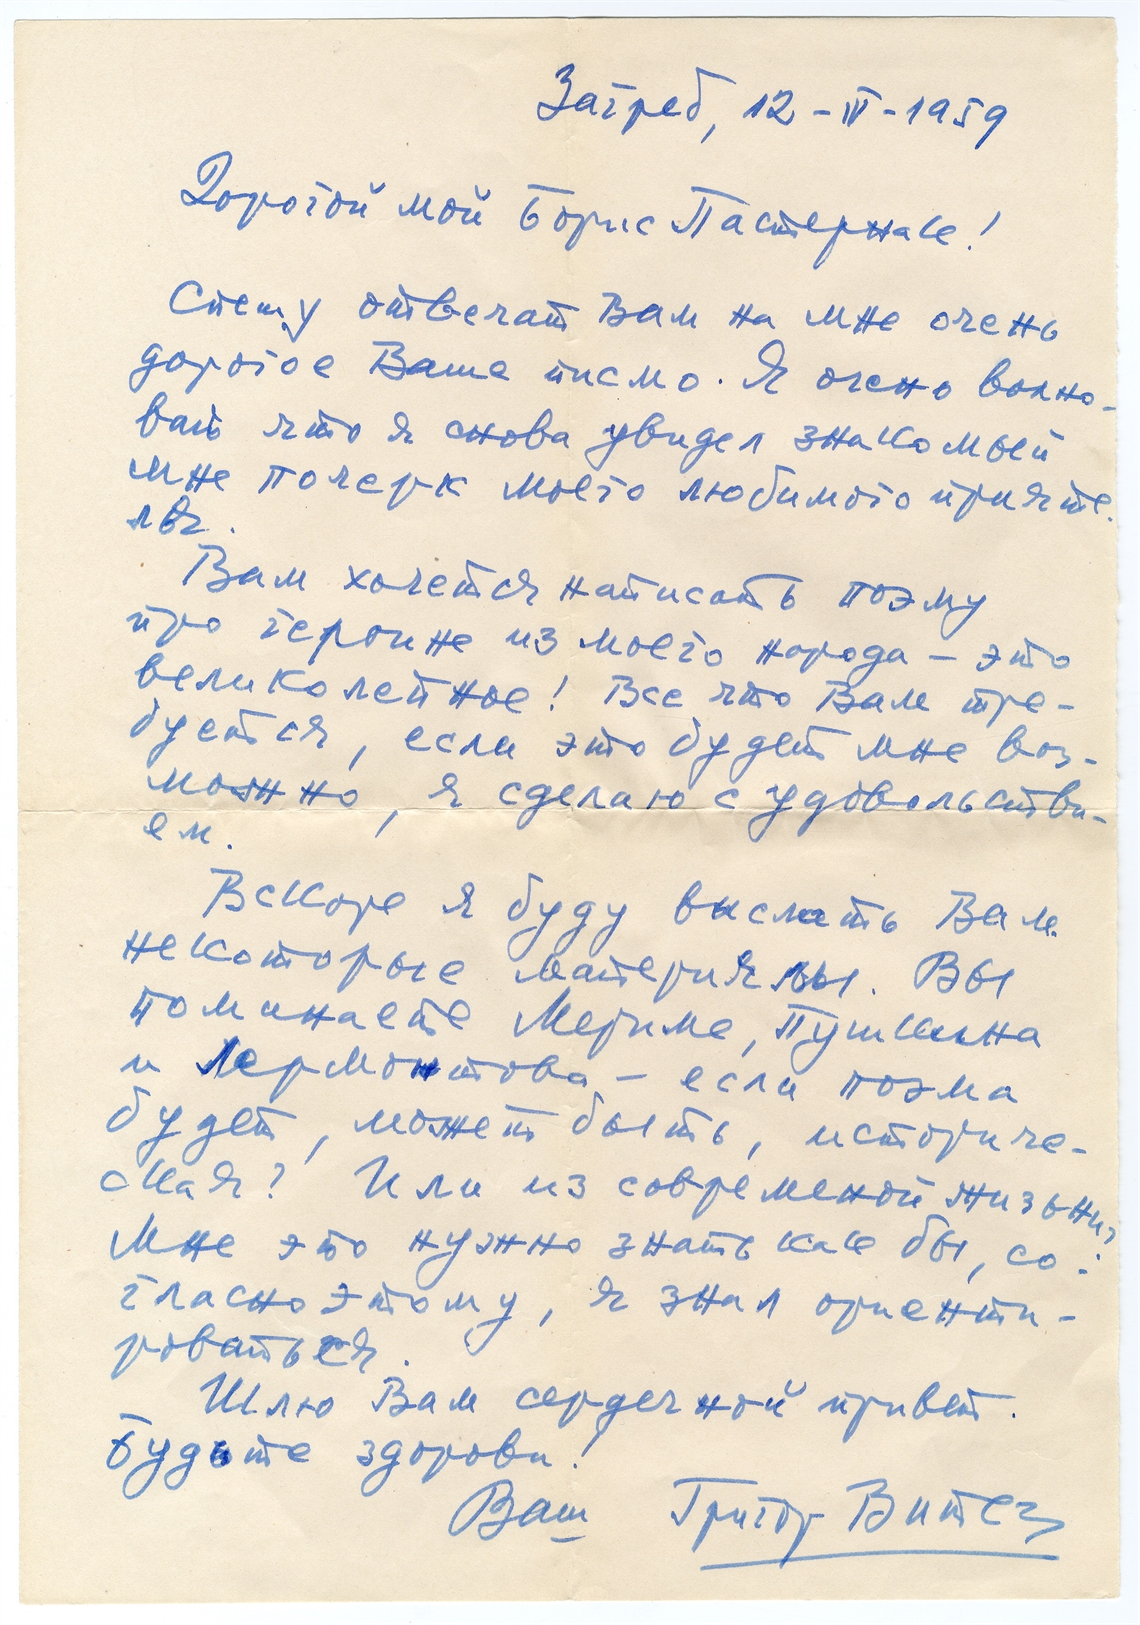 Загреб, 12-III-1959
Дорогой мой Борис Пастернак!
Спешу отвечат Вам на мне очень
дорогое Ваше писмо. Я очено волно-
ват что я снова увидел знакомый
мне почерк моего любимого прияте-
ля.
Вам хочется написать поэму
про героине из моего народа — это
великолепное! Все что Вам тре-
буется, если это будет мне воз-
можно, я сделаю с удовольстви-
ем.
Вскоре я буду выслать Вам
некоторые материялы. Вы
поминаете Мериме, Пушкина
и Лермонтова — если поэма
будет, может быть, историче-
ская? Или из современой жизьни?
Мне это нужно знать как бы, со-
гласно этому, я знал ориенти-
роваться.
Шлю Вам сердечной привет.
Будьте здорови!
Ваш Григор Витез